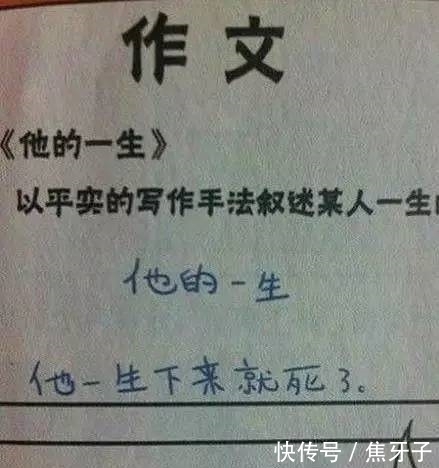 作文
《他的一生》
以平实的写作手法叙述某人一生
他的一生
他一生下来就死了。
快传号/焦牙子